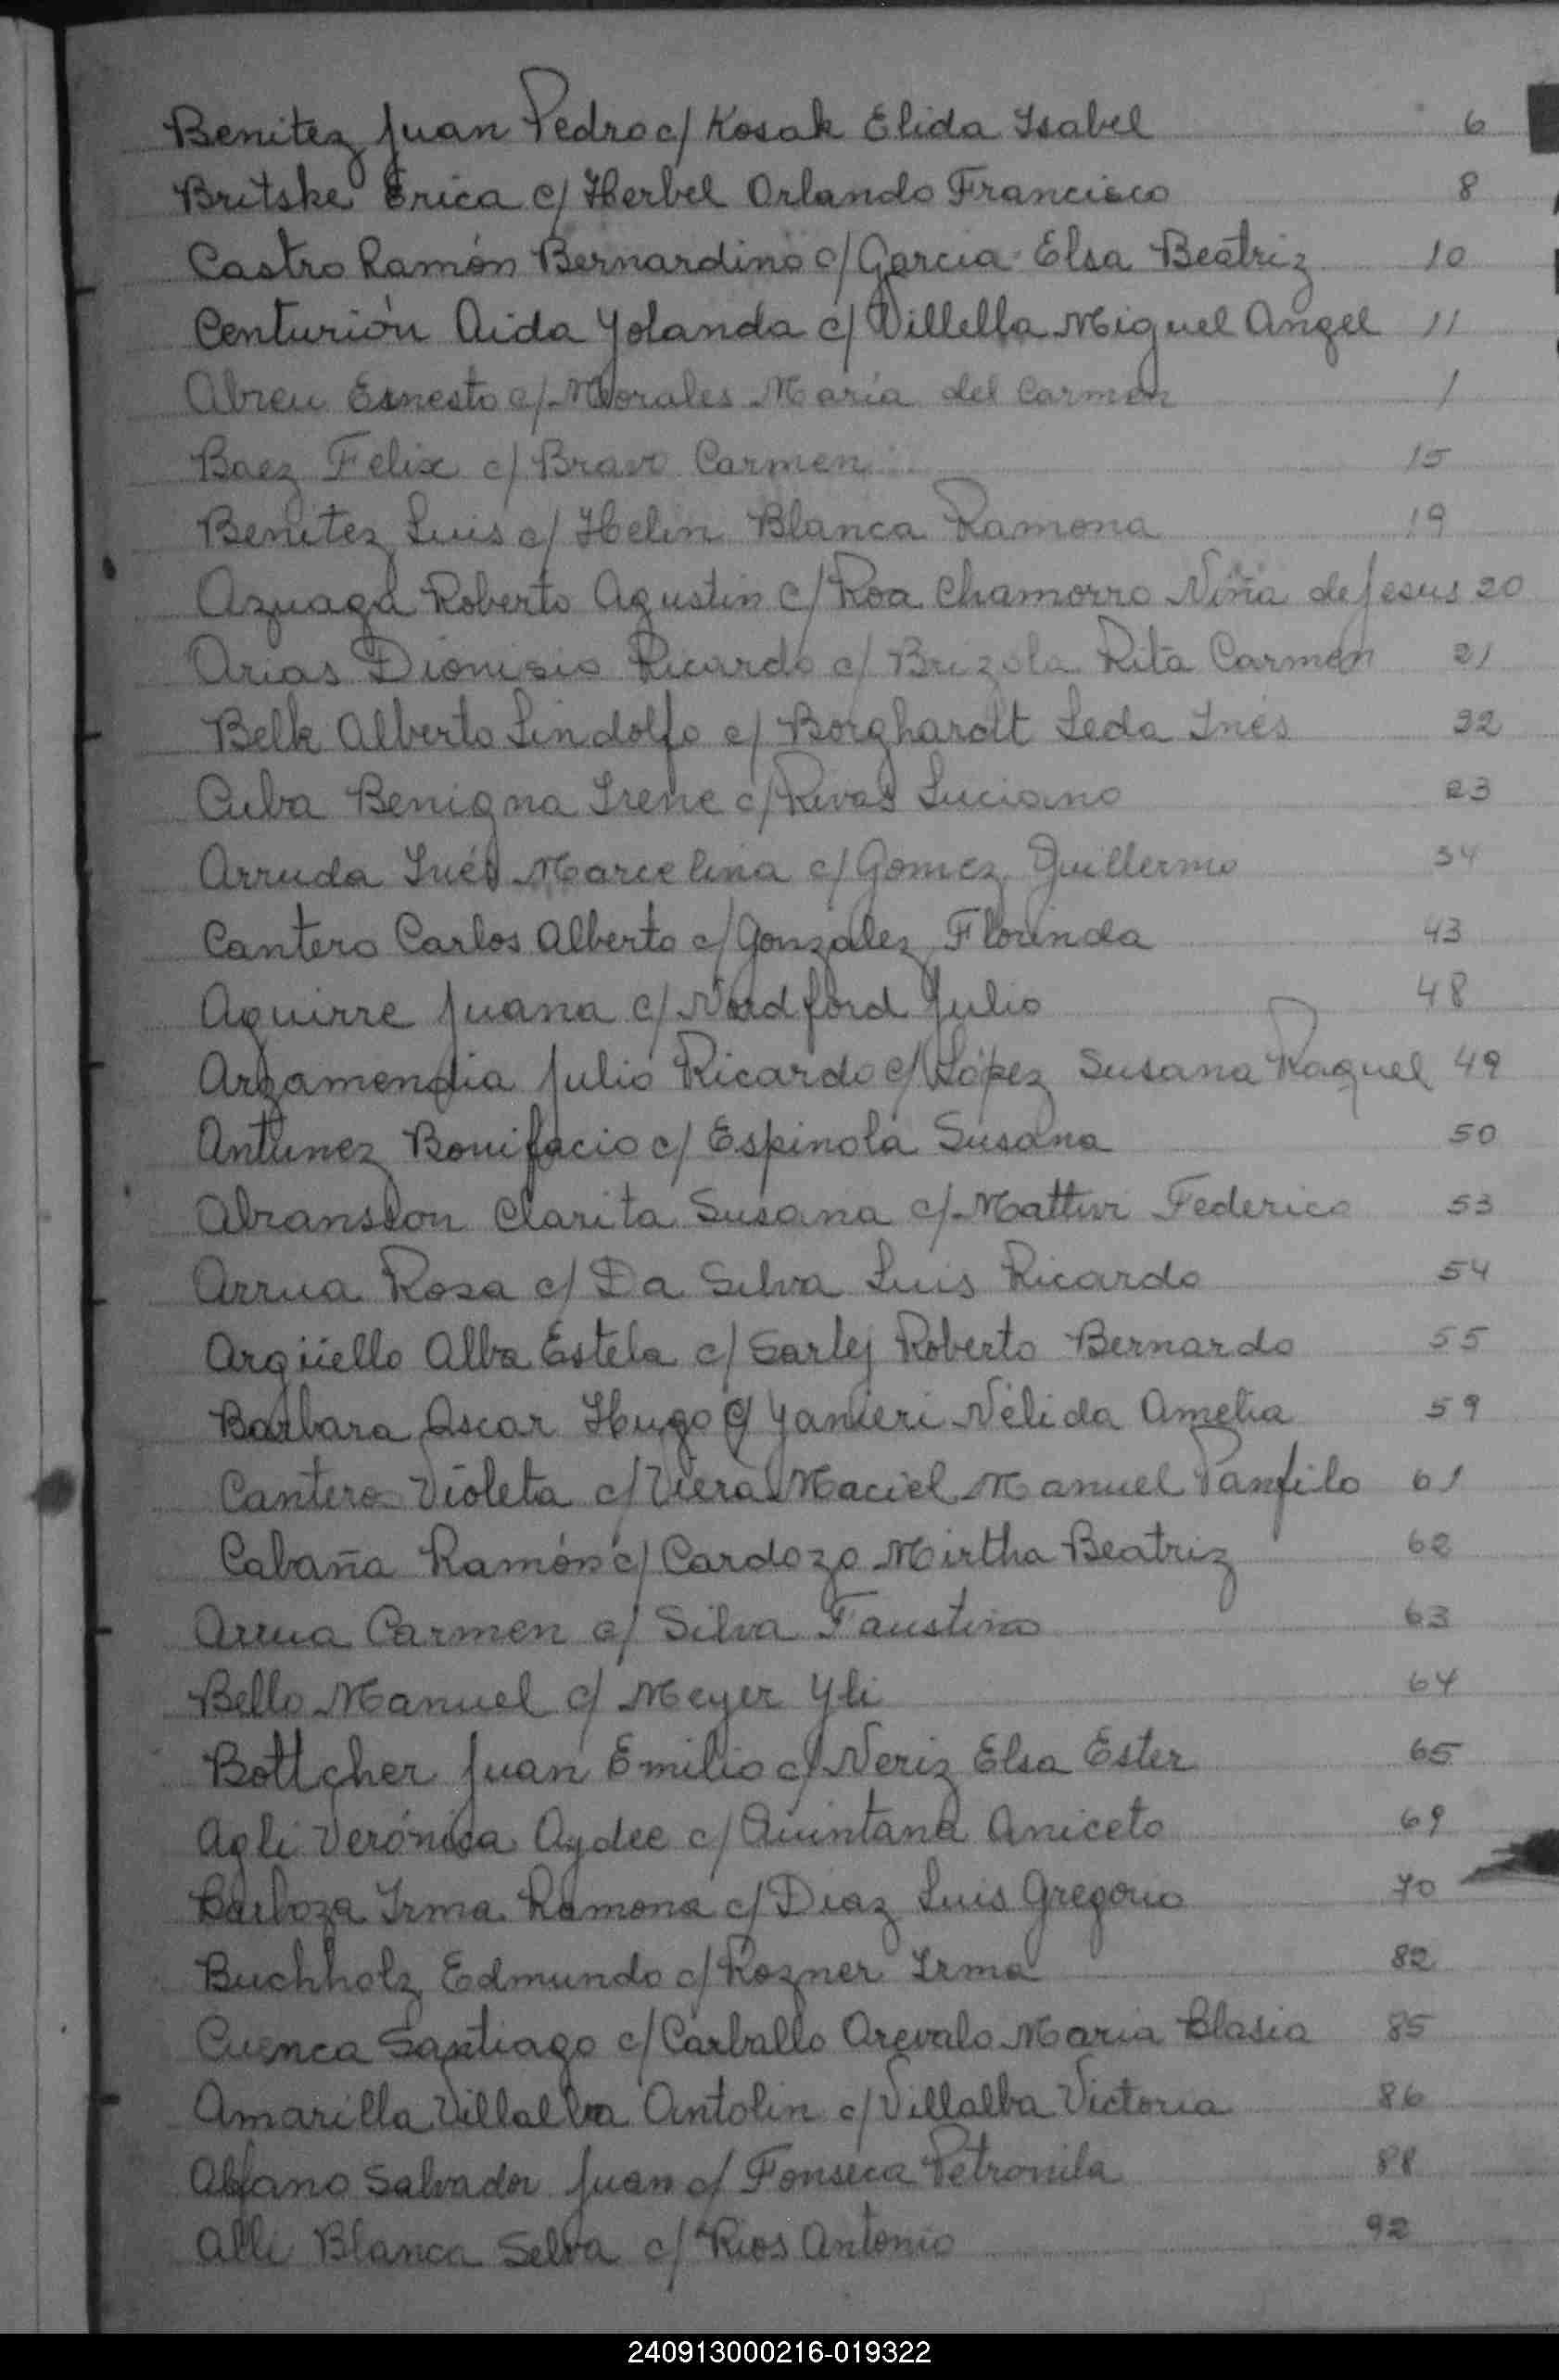 Benitez Juan Pedro c/ Kosak Elida Isabel 6
Britske Erica c/ Herbel Orlando Francisco 8
Castro Ramón Bernardino c/ Garcia Elsa Beatriz 10
Centurión Aida Yolanda c/ Villella Miguel Angel 11
Abreu Ernesto c/ Morales María del Carmen 1
Baez Felix c/ Bravo Carmen 15
Benitez Luis c/ Helin Blanca Ramona 19
Azuaga Roberto Agustin c/ Roa Chamorro Niña de Jesus 20
Arias Dionisio Ricardo c/ Brizola Rita Carmen 21
Belk Alberto Lindolfo c/ Borghardt Leda Inés 32
Cuba Benigna Irene c/ Rivas Luciano 23
Arruda Inés Marcelina c/ Gomez Guillermo 34
Cantero Carlos Alberto c/ Gonzalez Florinda 43
Aguirre Juana c/ Nordford Julio 48
Argamendia Julio Ricardo c/ López Susana Raquel 49
Antunez Bonifacio c/ Espinola Susana 50
Abransson Clarita Susana c/ Federico 53
Arrua Rosa c/ Da Silva Luis Ricardo 54
Argüello Alba Estela c/ Sarlej Roberto Bernardo 55
Barbara Oscar Hugo c/ Yanieri Nélida Amelia 59
Cantero Violeta c/ Viera Maciel Manuel Panfilo 61
Cabaña Ramón c/ Cardozo Mirtha Beatriz 62
Arrua Carmen c/ Silva Faustino 63
Bello Manuel c/ Meyer Yli 64
Bottcher Juan Emilio c/ Neriz Elsa Ester 65
Agli Verónica Aydee c/ Quintana Aniceto 69
Barboza Irma Ramona c/ Diaz Luis Gregorio 70
Buchholz Edmundo c/ Rozner Irma 82
Cuenca Santiago c/ Carballo Arevalo Maria Blasia 85
Amarilla Villalba Antolin c/ Villalba Victoria 86
Alfano Salvador Juan c/ Fonseca Petronila 88
Alli Blanca Selva c/ Rios Antonio 92
240913000216-019322